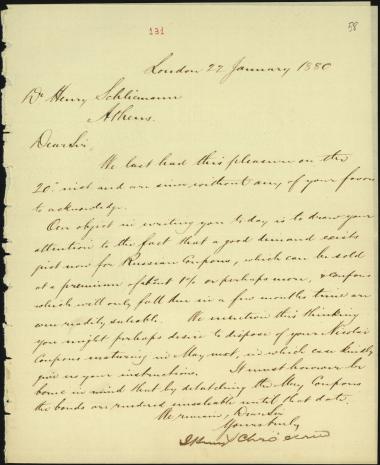 131
58
London 22 January 1880
Dr Henry Schliemann
Athens.
Dear Sir,
We last had this pleasure on the
20th inst and are since without any of your favors
to acknowledge.
Our object in writing you to day is to draw your
attention to the fact that a good demand exists
just now for Russian Coupons, which can be sold
at a premium of about 1% or perhaps more, & Coupons
which will only fall due in a few months time are
even readily saleable. We mention this thinking
you might perhaps desire to dispose of your Nicolai
Coupons maturing in May next, in which case kindly
give us your instructions. It must however be
borne in mind that by detaching the May Coupons
the bonds are rendered unsaleable until that date.
We remain, Dear Sir
Yours truly
Schröder